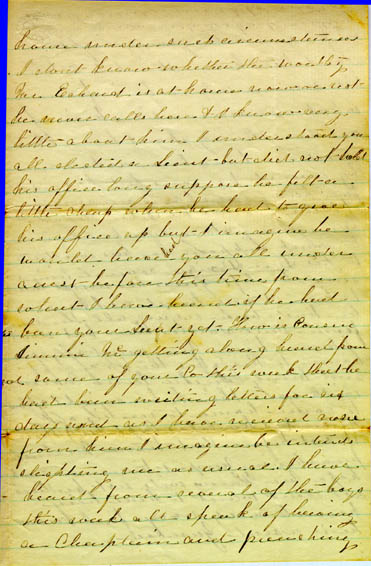 home under such circumstances
I dont know whether the worthy
Mr Eckard is at home now or not
he never calls here & I know very
little about him I understand you
all elected a Lieut but did not hold
his office long suppose he felt a
little cheap when he had to give
his office up but I imagine he
would have had you all under
arrest before this time from
what I have heard if he had
been your Lieut yet. How is Cousin
Simmie Mc getting along heard from
some of your Co this week that he
had been writing letters for six
days and as I have received none
from him I imagine he intends
slighting me as usual. I have
heard from several of the boys
this week all speak of having
a Chaplain and preaching